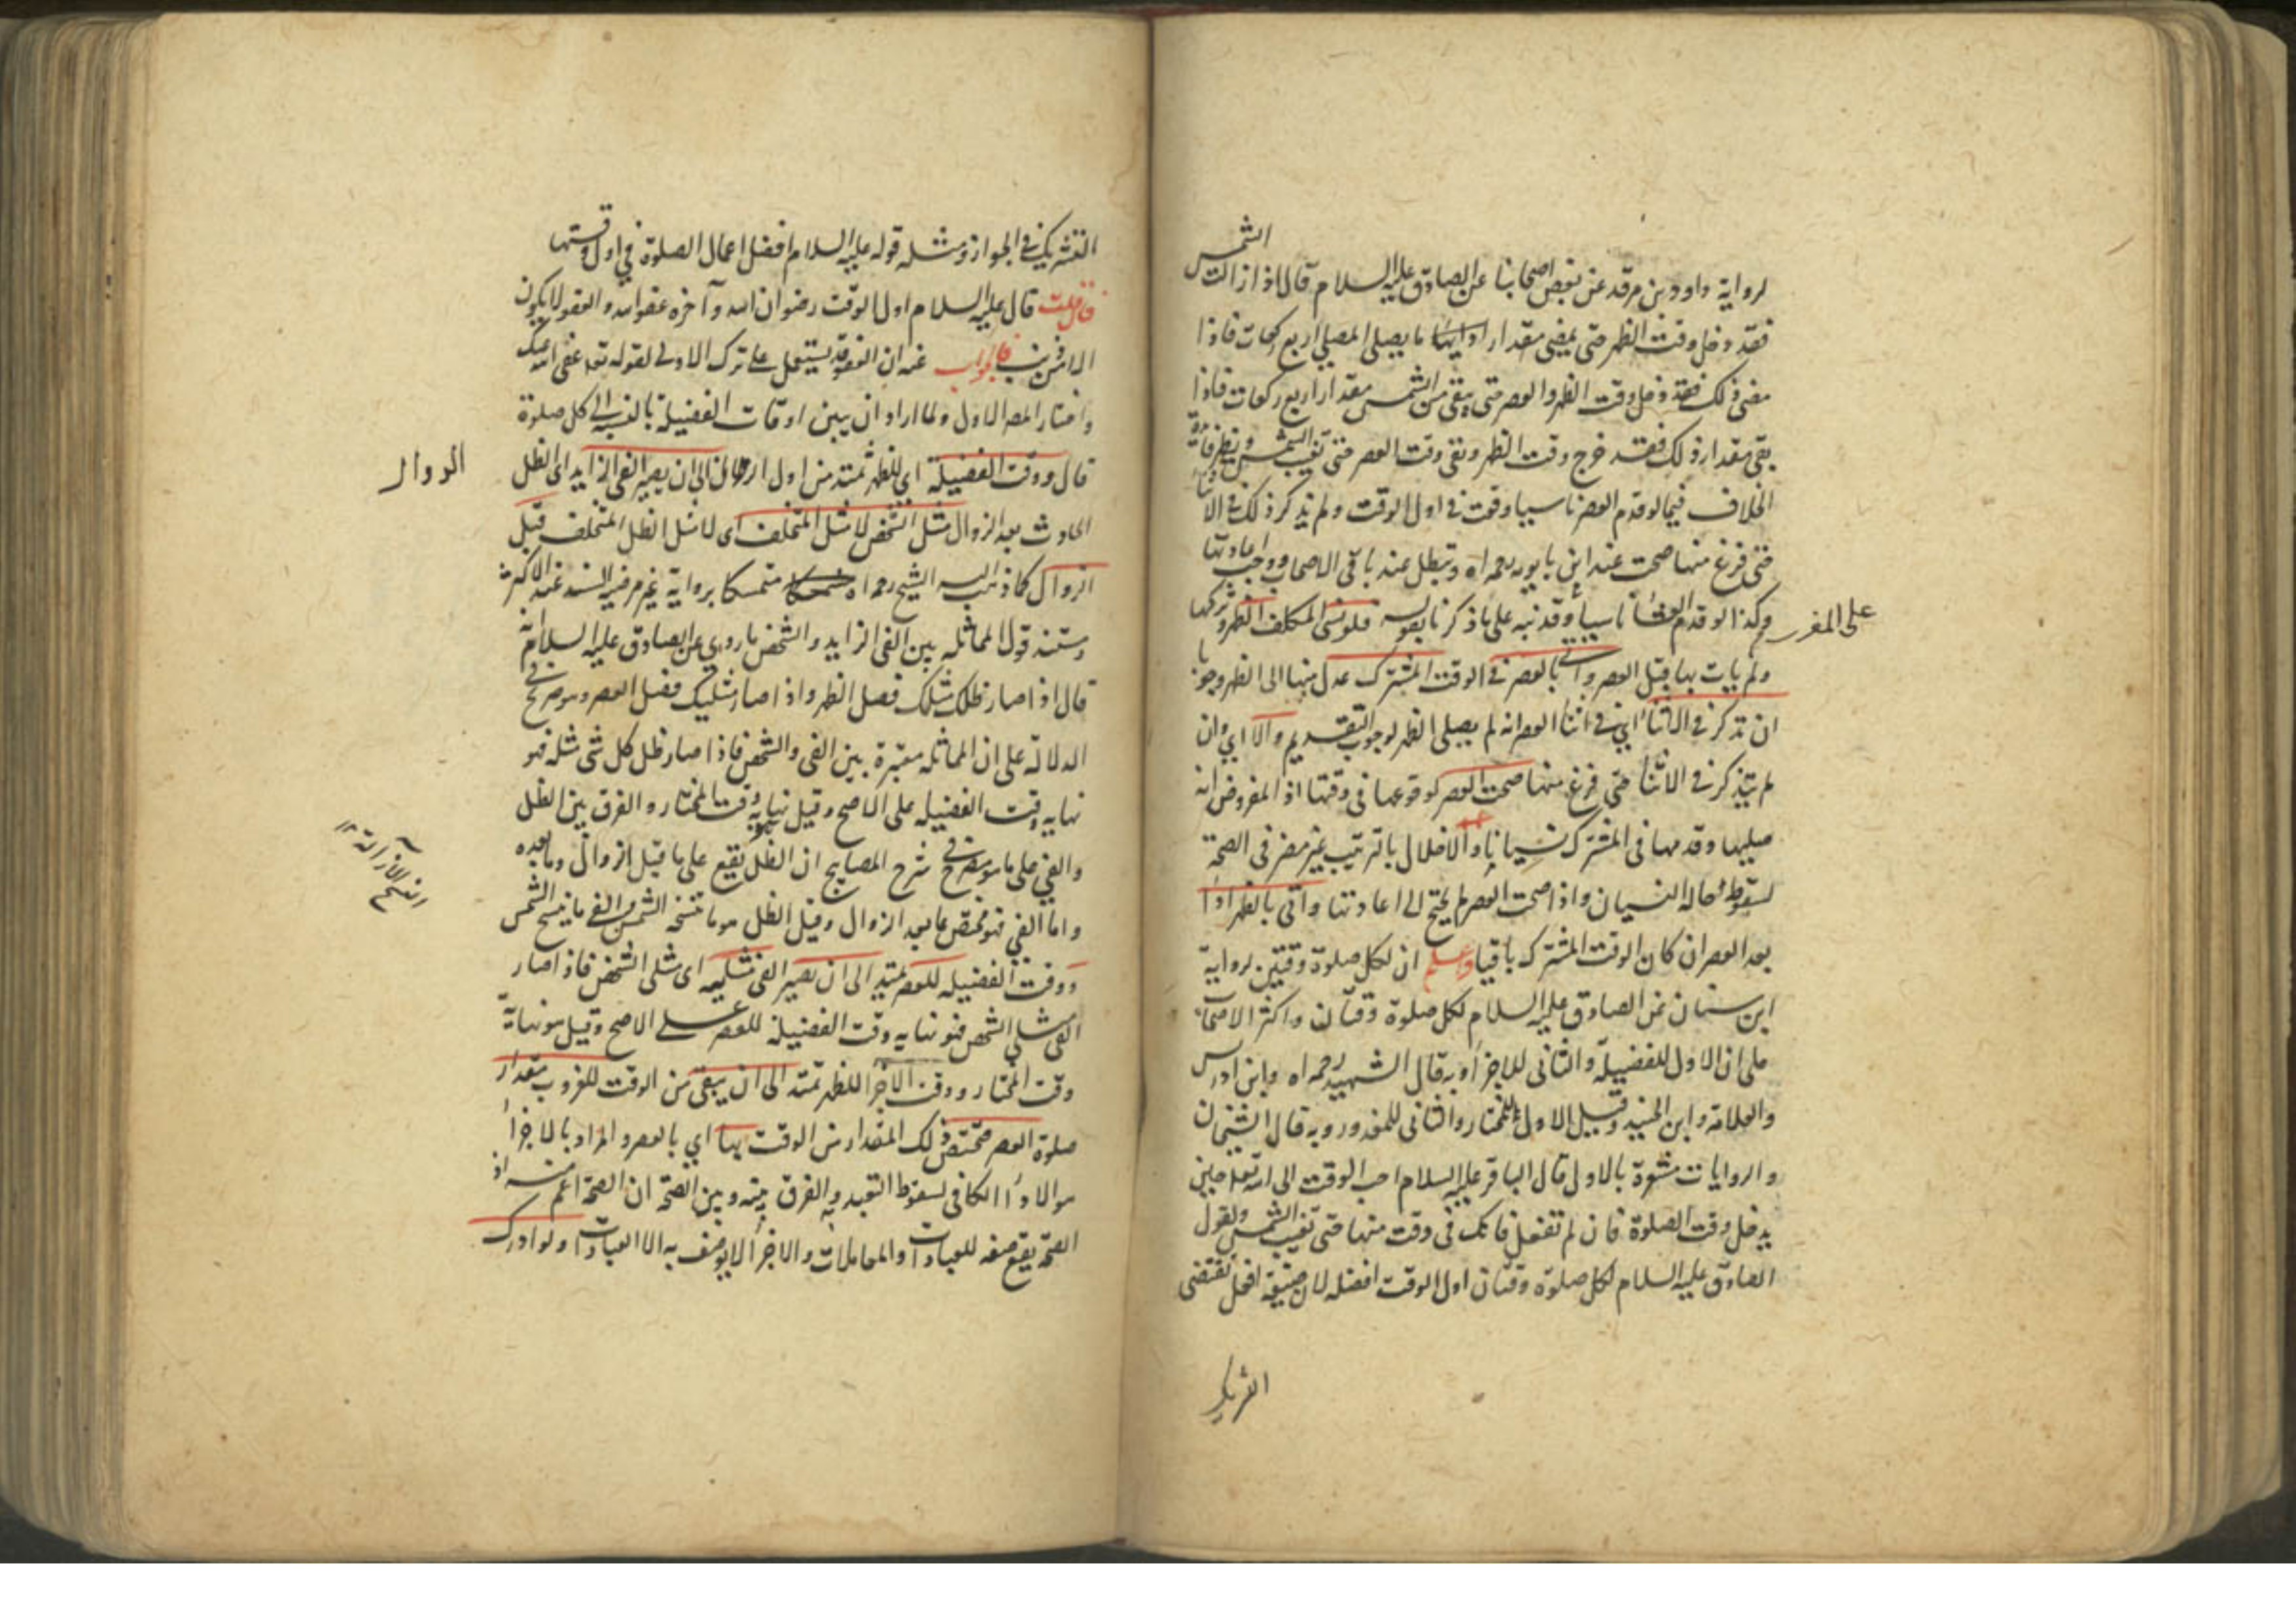 لرواية داود بن فرقد عن بعض اصحابنا عن الصادق عليه السلام قال اذا زالت الشمس
فقد دخل وقت الظهر حتى يمضى مقدار ما يصلى المصلى اربع ركعات فاذا
مضى ذلك فقد دخل وقت الظهر والعصر حتى يبقى من الشمس مقدار اربع ركعات فاذا
بقى مقدار ذلك فقد خرج وقت الظهر وبقى وقت العصر حتى تغيب الشمس ويظهر فائدة
الخلاف فيما لو قدم العصر ناسيا وقعت فى اول الوقت ولم يذكر ذلك فى الاثنا
حتى فرغ منها صحت عند ابن بابويه رحمه اه وتبطل عند باقى الاصحاب ووجب اعادتها
وكذا لو قدم العشا ناسيا وقد نبه على ما ذكرنا بقوله فلو نسى المكلف الظهر وتركها
على المغرب
ولم يات بها قبل العصر واتى بالعصر فى الوقت المشترك عدل منها الى الظهر وجوبا
ان تذكر فى الاثنا اى فى اثنا العصر انه لم يصلى الظهر لوجوب التقديم والا اى وان
لم يتذكر فى الاثنا حتى فرغ منها صحت العصر لوقوعها فى وقتها اذ المفروض انه
صليها وقدمها فى المشترك نسيانا والاخلال بالترتيب غير مضر فى الصحة
لسقوطه حالة النسيان واذا صحت العصر لم يحتج الى اعادتها واتى بالظهر اداا
بعد العصر ان كان الوقت المشترك باقيا واعلم ان لكل صلوة وقتين لرواية
ابن سنان عن الصادق عليه السلام لكل صلوة وقتان واكثر الاصحاب
على ان الاول للفضيلة والثانى للاجزا وبه قال الشهيد رحمه اه وابن ادريس
والعلامة وابن الجنيد وقيل الاول للمختار والثانى للمعذور وبه قال الشيخان
والروايات مشعرة بالاول قال الباقر عليه السلام احب الوقت الى الله تعه حين
يدخل وقت الصلوة فان لم تفعل فانك فى وقت منها حتى تغيب الشمس ولقول
الصادق عليه السلام لكل صلوة وقتان اول الوقت افضله لان صيغة افعل تقتضى
التشريك
التشريك فى الجواز ومثله قوله عليه السلام افضل اعمال الصلوة فى اول وقتها
فان قلت قال عليه السلام اول الوقت رضوان الله وآخره عفو الله والعفو لا يكون
الا من ذنب فالجواب عنه ان العفو قد يستعمل على ترك الاولى لقوله تعه عفى الله عنك
واختار المص الاول ولما اراد ان يبين اوقات الفضيلة بالنسبة الى كل صلوة
قال ووقت الفضيلة اى للظهر تمتد من اول الى ان يصير الفى الزايد اى الظل
الزوال
الحادث بعد الزوال مثل الشخص لا مثل المتخلف اى لا مثل الظل المتخلف قبل
الزوال كما ذهب اليه الشيخ رحمه اه متمسكا برواية غير مرضى السند عند الاكثر
ومستند قول المماثله بين الفى الزايد والشخص ما روى عن الصادق عليه السلام انه
قال اذا صار ظلك مثلك فصل الظهر واذا صار مثليك فصل العصر وهو صريح فى
الدلالة على ان المماثله معتبرة بين الفى والشخص فاذا صار ظل كل شى مثله فهو
نهايه وقت الفضيله على الاصح وقيل نهاية وقت المختار والفرق بين الظل
والفى على ما هو مصرح فى شرح المصابيح ان الظل يقع على ما قبل الزوال وما بعده
واما الفى فهو مختص بما بعد الزوال وقيل الظل هو ما تنسخه الشمس والفى ما ينسخ الشمس
ووقت الفضيله للعصر يمتد الى ان يصير الفى مثليه اى مثلى الشخص فاذا صار
الفى مثلى الشخص فهو نهايه وقت الفضيلة للعصر على الاصح وقيل هو نهاية
وقت المختار ووقت الاجزا للظهر تمتد الى ان يبقى من الوقت للغروب مقدار
صلوة العصر فيختص ذلك المقدار من الوقت بها اى بالعصر والمراد بالاجزا
هو الاداا الكافى لسقوط التعبد به والفرق بينه وبين الصحة ان الصحة اعم منه اذ
الصحة يقع صفه للعبادات والمعاملات والاجزا لا يوصف به الا العبادات ولو ادرك